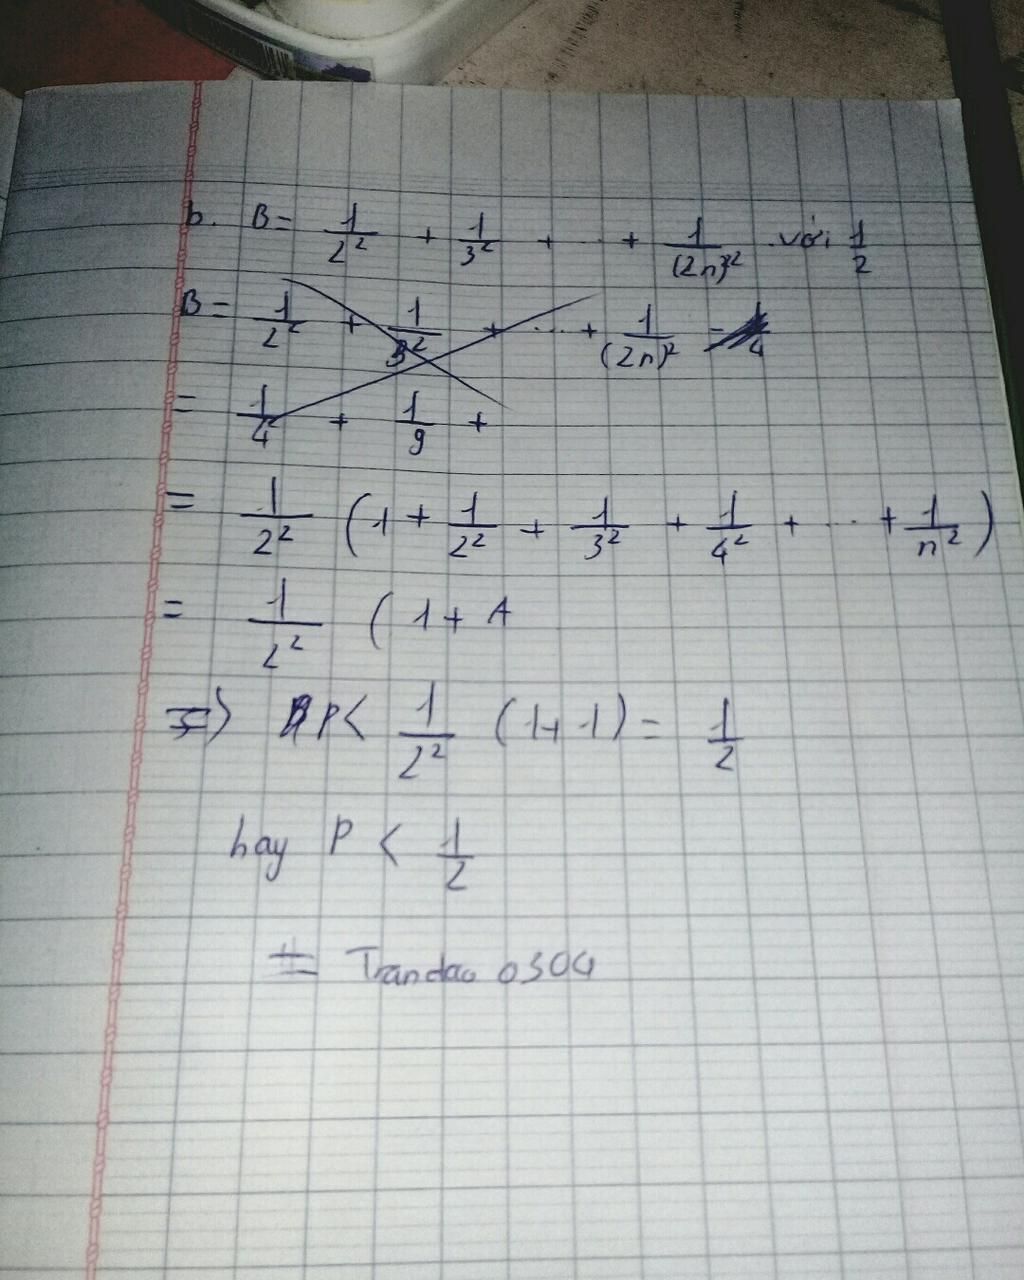 b. B = 1/2² + 1/3² + ... + 1/(2n)² với 1/2
B = 1/2² + 1/3² + ... + 1/(2n)²
= 1/4 + 1/9 +
= 1/2² (1 + 1/2² + 1/3² + 1/4² + ... + 1/n²)
= 1/2² ( 1 + A
=> P < 1/2² (1+1) = 1/2
hay P < 1/2
# Trandao 0304